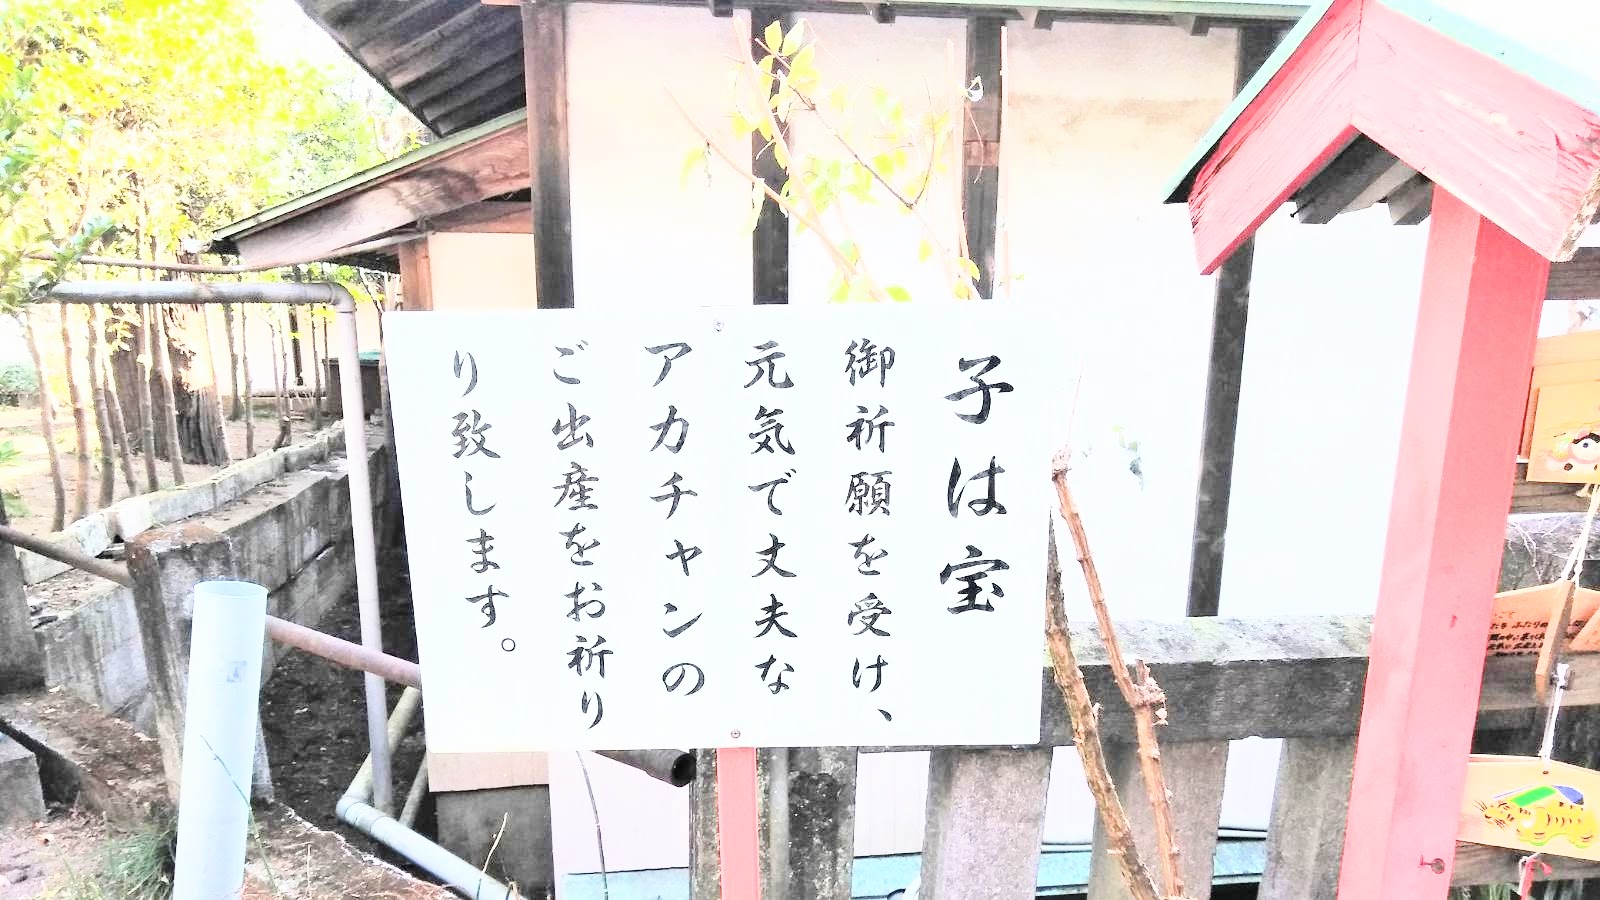 子は宝
御祈願を受け、
元気で丈夫な
アカチャンの
ご出産をお祈り
り致します。